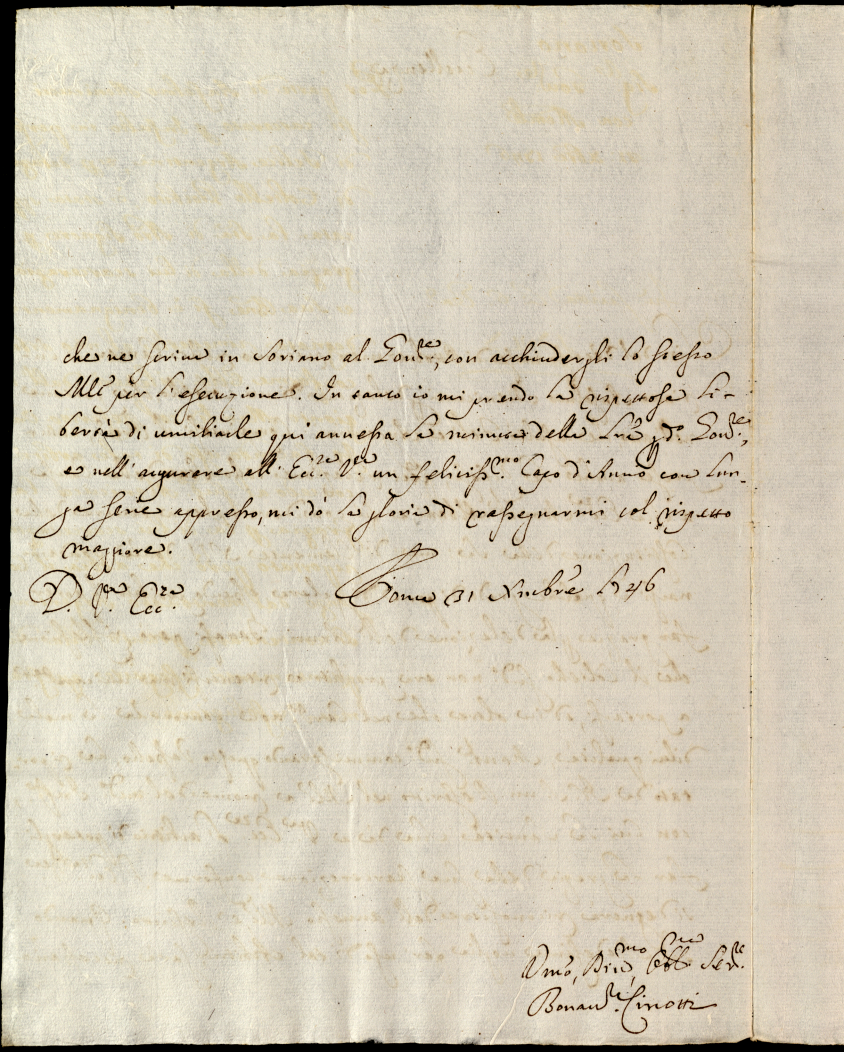 che ne scrive in Soriano al Gov.re, con acchiudergli lo stesso
Mle per l'esecuzione. In tanto io mi prendo la rispettosa li-
bertà di umiliarle qui annessa la minuta della Lrã pd.º Gov.re,
e nell'augurare all'Ecc.za V.ra un feliciss.mo Capo d'Anno con lun-
ga serie appresso, mi dò la gloria di rassegnarmi col rispetto
maggiore.
D. V.ra Ecc.za
Roma 31 Xmbrẽ 1746
Vmõ, Div.mo, Obb.mo Ser.re
Bonav.ra Cinotti